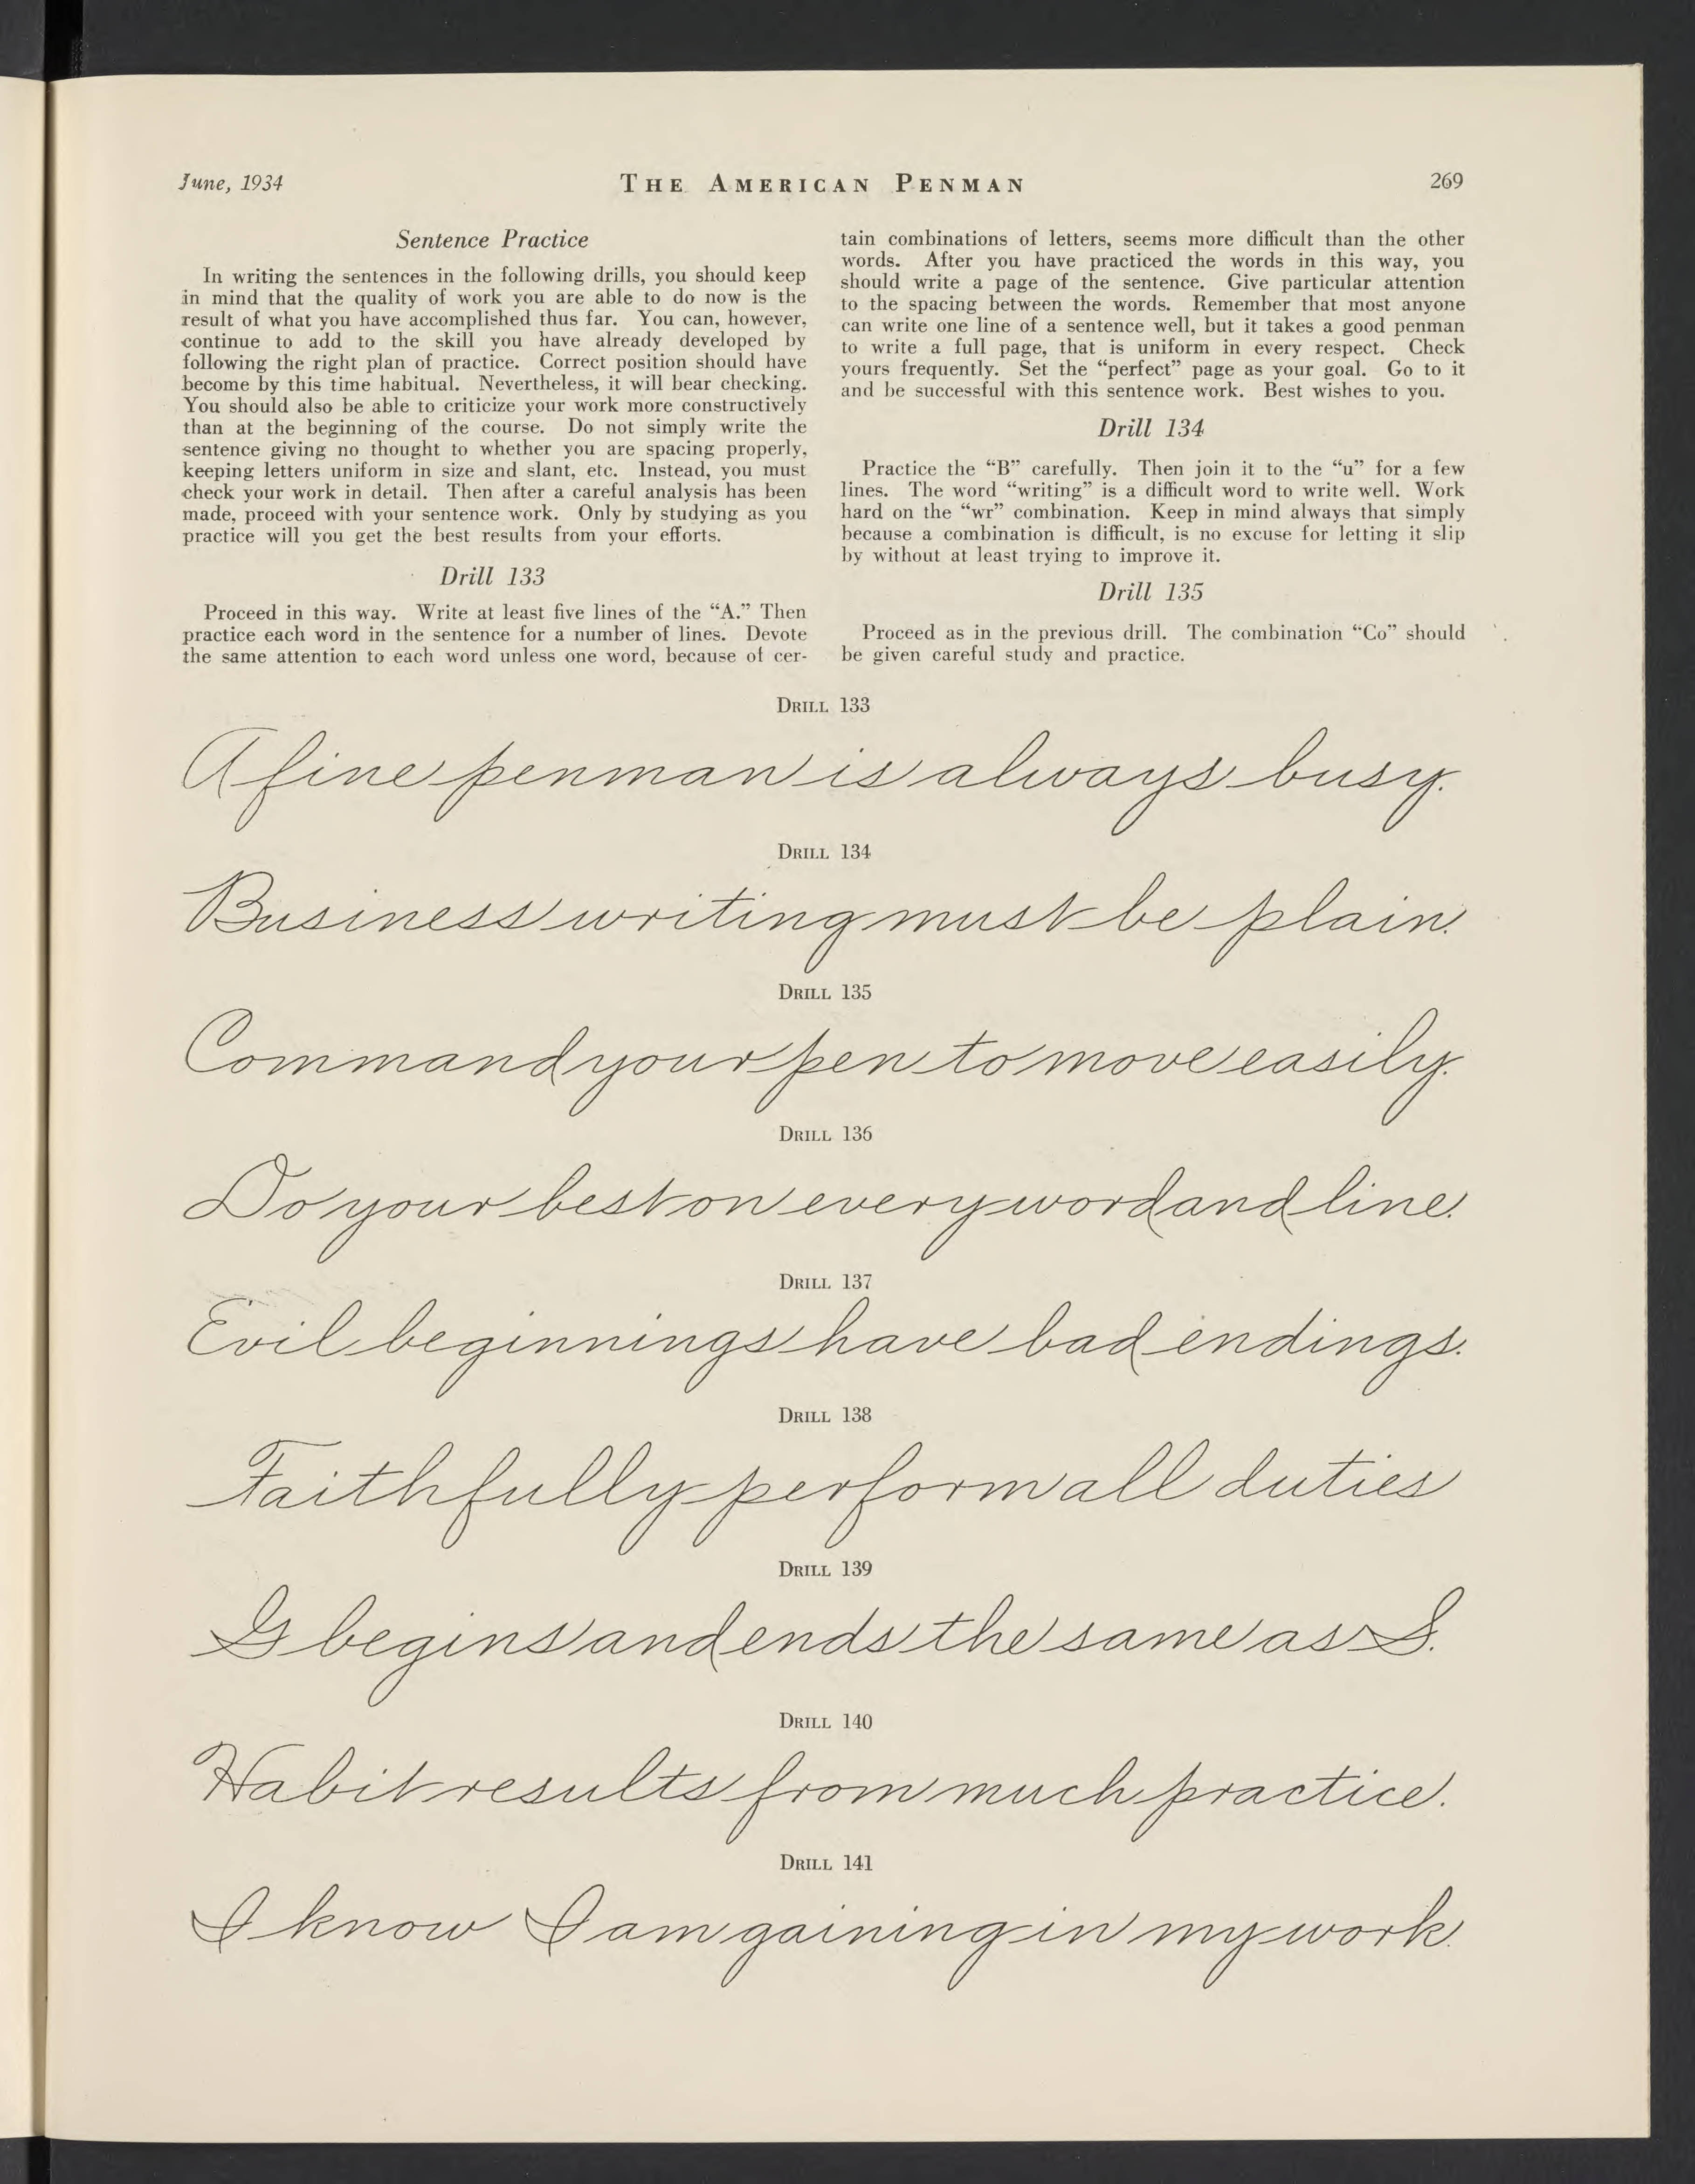 June, 1934
THE AMERICAN PENMAN
269
Sentence Practice
In writing the sentences in the following drills, you should keep
in mind that the quality of work you are able to do now is the
result of what you have accomplished thus far. You can, however,
continue to add to the skill you have already developed by
following the right plan of practice. Correct position should have
become by this time habitual. Nevertheless, it will bear checking.
You should also be able to criticize your work more constructively
than at the beginning of the course. Do not simply write the
sentence giving no thought to whether you are spacing properly,
keeping letters uniform in size and slant, etc. Instead, you must
check your work in detail. Then after a careful analysis has been
made, proceed with your sentence work. Only by studying as you
practice will you get the best results from your efforts.
Drill 133
Proceed in this way. Write at least five lines of the “A.” Then
practice each word in the sentence for a number of lines. Devote
the same attention to each word unless one word, because of cer-
tain combinations of letters, seems more difficult than the other
words. After you have practiced the words in this way, you
should write a page of the sentence. Give particular attention
to the spacing between the words. Remember that most anyone
can write one line of a sentence well, but it takes a good penman
to write a full page, that is uniform in every respect. Check
yours frequently. Set the “perfect” page as your goal. Go to it
and be successful with this sentence work. Best wishes to you.
Drill 134
Practice the “B” carefully. Then join it to the “u” for a few
lines. The word “writing” is a difficult word to write well. Work
hard on the “wr” combination. Keep in mind always that simply
because a combination is difficult, is no excuse for letting it slip
by without at least trying to improve it.
Drill 135
Proceed as in the previous drill. The combination “Co” should
be given careful study and practice.
DRILL 133
A fine penman is always busy.
DRILL 134
Business writing must be plain.
DRILL 135
Command your pen to move easily.
DRILL 136
Do your best on every word and line.
DRILL 137
Evil beginnings have bad endings.
DRILL 138
Faithfully perform all duties
DRILL 139
G begins and ends the same as S.
DRILL 140
Habit results from much practice.
DRILL 141
I know I am gaining in my work.